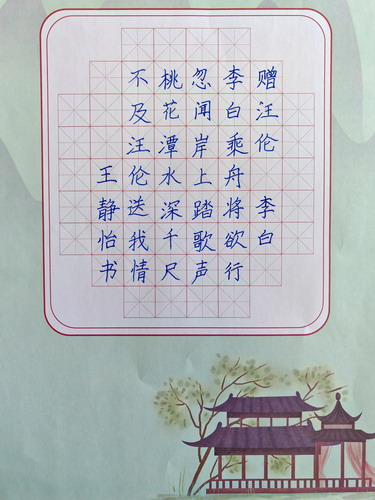 赠汪伦
李白
李白乘舟将欲行
忽闻岸上踏歌声
桃花潭水深千尺
不及汪伦送我情
王静怡书